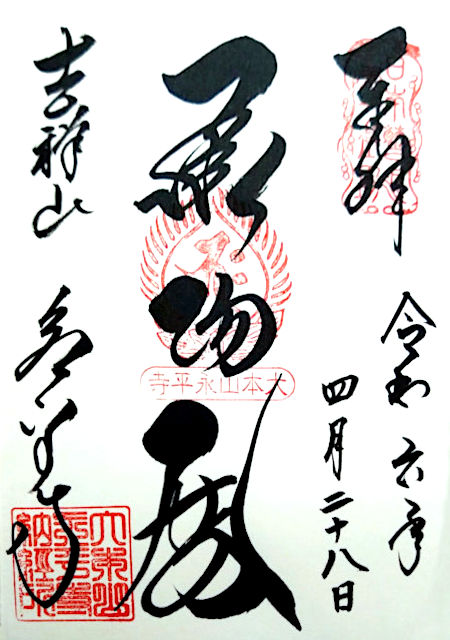 奉拝
令和六年
四月二十八日
承陽殿
大本山永平寺
吉祥山
永平寺